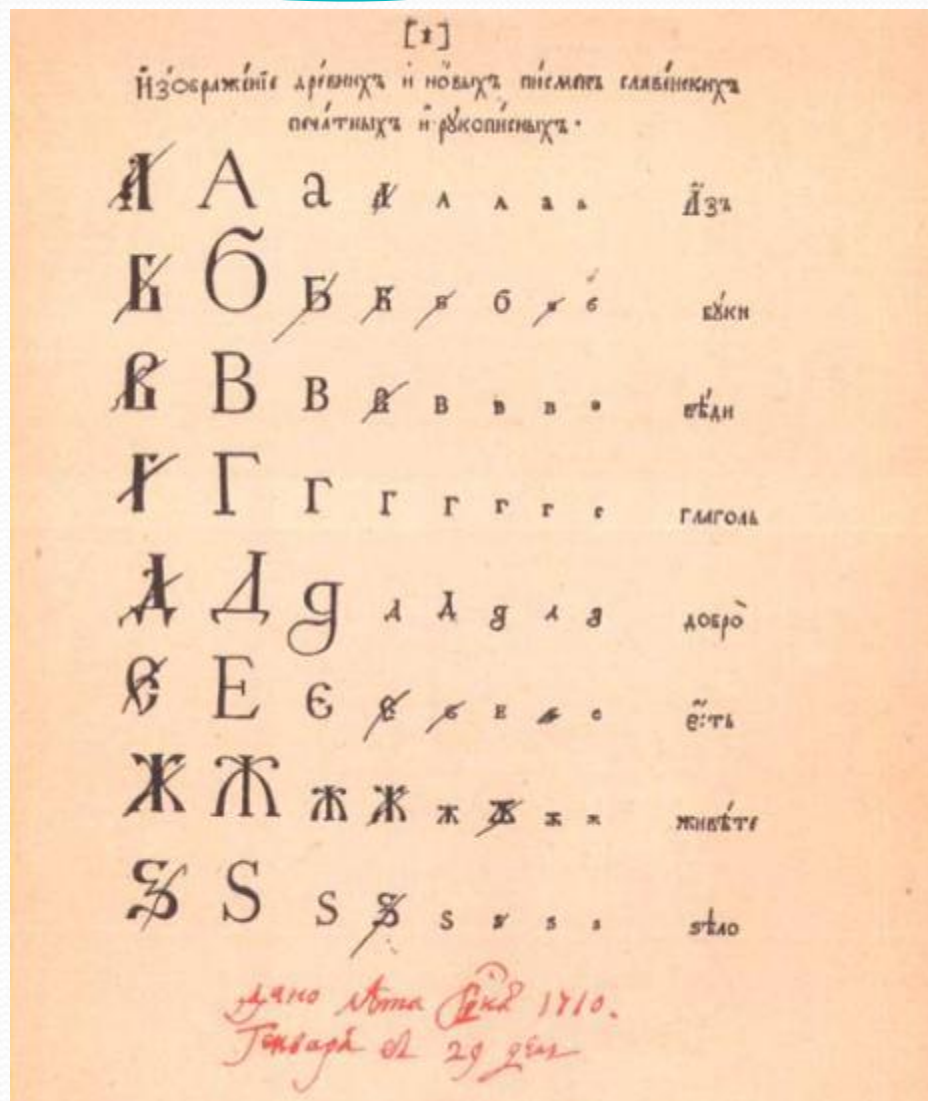 [1]
И҆зѡбраже́нїе дре́внихъ и҆ но́выхъ пи́сменъ славе́нскихъ
печа́тныхъ и҆ рꙋкопи́сныхъ.
А А а А а а а а А҆́зъ
Б б Б Б б б б б бꙋ́ки
В В в В в в в в вѣ́ди
Г Г г г г г г г глаголь
Д Д д д д д д д добро̀
Є Е є є є е е е є҆́сть
Ж Ж ж Ж ж ж ж ж живѣ́те
Ѕ Ѕ ѕ Ѕ ѕ ѕ ѕ ѕ ѕѣло
Дано лѣта 1710.
Генваря въ 29 день